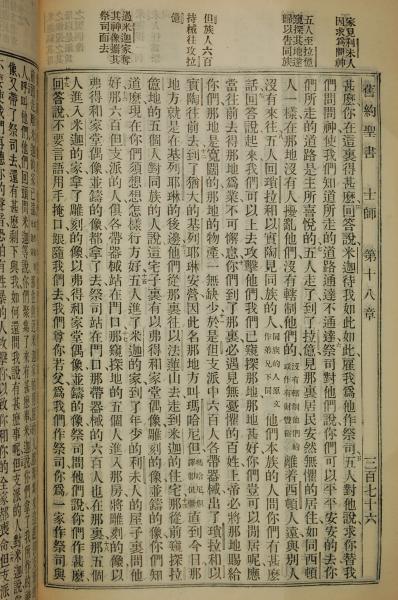 家見利未人
因求爲問神
五人至拉億
窺探其地遂
歸以告同族
但族人六百
持械往攻拉
億
過米迦家奪
其神像攜其
祭司而去
舊約聖書 士師 第十八章 三百七十六
甚麼你在這裏得甚麼回答說米迦待我如此如此雇我爲他作祭司五人對他說求你替我
們問問神使我們知道所走的道路通達不通達祭司對他們說你們可以平平安安的去你
們所走的道路是主所喜悅的五人走了到了拉億見那裏居民安然無懼的居住如同西頓
人一樣在那地沒有人擾亂他們沒有轄制他們的沒有轄制他們的或作有財豐裕離着西頓人遠與別人
沒有來往五人回瑣拉和以實陶見同族的人同族的人原文作弟兄下同他們本族的人問你們有甚麼
話回答說起來我們可以上去攻擊他們我們已窺探那地那地甚好你們豈可以閒居呢應
當往前去得那地爲業不可懈怠你們到了那裏必遇見無憂懼的百姓上帝必將那地賜給
你們那地是寬闊的那地的物產一無缺少於是但支派中六百人各帶器械出了瑣拉和以
實陶往前去到了猶大的基列耶琳安營因此名那地方叫瑪哈尼但瑪哈尼但譯卽但營直到今日那
地方就是在基列耶琳的後邊他們從那裏往以法蓮山去走到米迦的住宅那從前窺探拉
億地的五個人對同族的人說這宅子裏有以弗得和家堂偶像雕刻的像並鑄的像你們知
道麼現在你們須想想怎樣行方好五人進了米迦的家到了年少的利未人的屋子裏問他
好那六百但支派的人俱各帶器械站在門口那窺探地的五個人進入那房將雕刻的像以
弗得和家堂偶像並鑄的像都拿了去祭司站在門口那帶器械的六百人也在那裏那五個
人進入米迦的家拿了雕刻的像以弗得和家堂偶像並鑄的像祭司問他們說你們作甚麼
回答說不要言語用手掩口跟隨我們去我們尊你若父爲我們作祭司你爲一家作祭司與